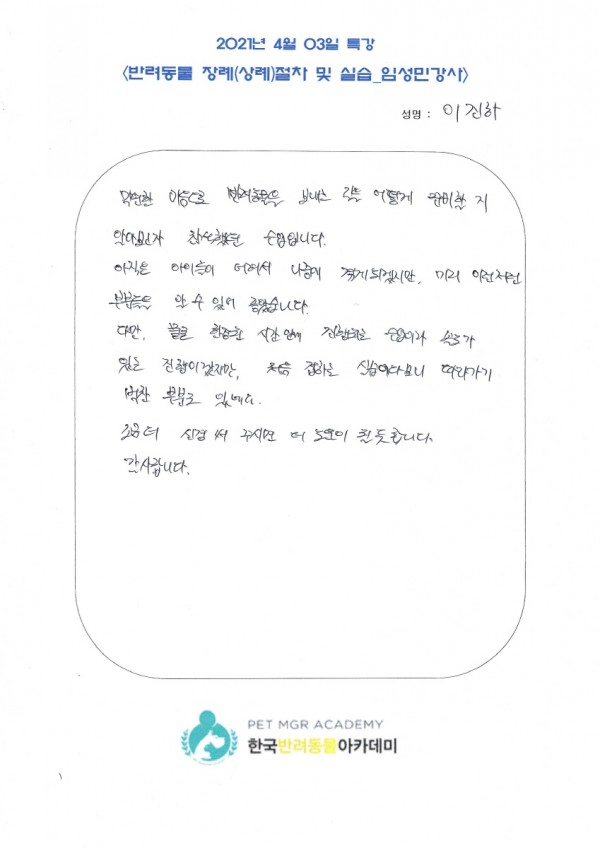 2021년 4월 03일 특강
<반려동물 장례(상례)절차 및 실습_임성민강사>
성명 : 이진하
막연한 마음으로 반려동물을 보내는 길을 어떻게 준비할 지
알아보고자 참석했던 수업입니다.
아직은 아이들이 어려서 나중에 겪게 되겠지만, 미리 이런저런
부분들을 알 수 있어 좋았습니다.
다만, 짧은 한정된 시간 안에 진행되는 수업이라 속도가
있는 진행이겠지만, 처음 접하는 실습이다보니 따라가기
벅찬 부분도 있네요.
조금 더 신경 써 주시면 더 도움이 될듯합니다.
감사합니다.
PET MGR ACADEMY
한국반려동물아카데미